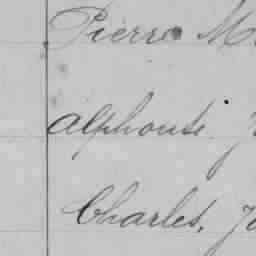 Pierre M
Alphonse
Charles, J